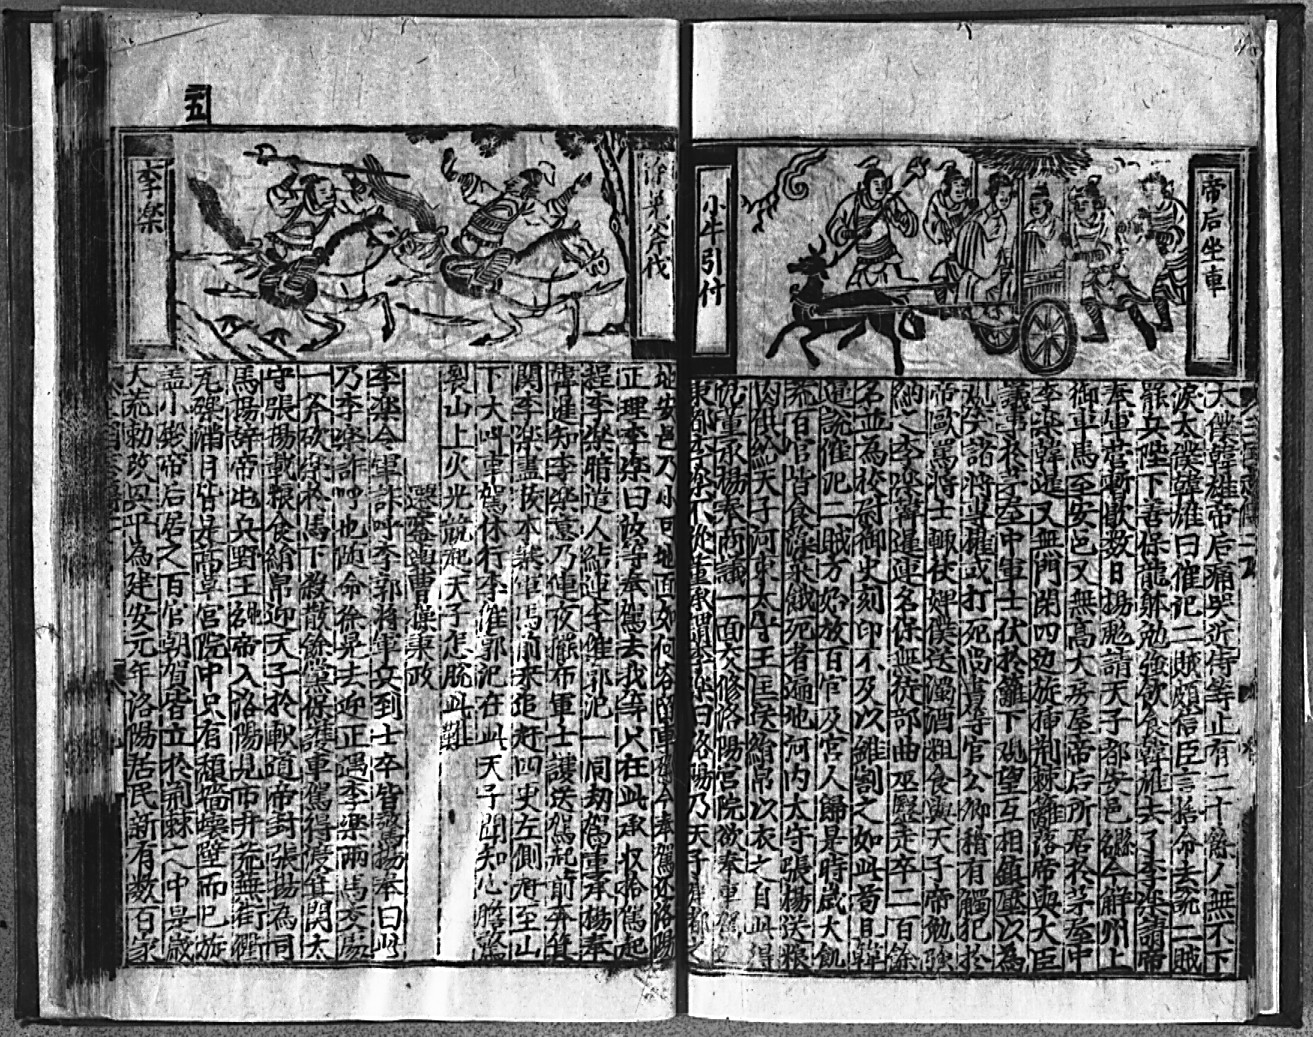 帝后坐車
小牛引付
太僕韓雄帝后痛哭近侍等止有二十餘人無不下
淚太僕韓雄曰傕汜二賊頗信臣言捨命去説二賊
罷兵陛下善保龍躰勉強飲食韓雄去了李楽請帝
奉軍營暫歇数日楊彪請天子都安邑
御車馬至安邑又無高大房屋帝后所居於茅屋中
李楽韓暹又無門閉四边旋插荆棘籬落帝與大臣
議事於茅屋中軍士伏於籬下覌望互相鎮壓以為
諸將專權或打死尚書等官公卿稍有觸犯於
帝毆罵將士輙仗婢僕送濁酒粗食與天子帝勉強
納之李楽韓暹連名保無徒部曲巫毉走卒二百餘
名並為校尉御史刻印不及以錐劃之如此苟且韓
暹説傕汜二賊方始放百官及宫人歸是時歲大飢
荒百官皆食菜餓死者遍地河内太守張楊送粮
肉供給天子河東太守王匡送絹帛以衣之自此得
董承楊奉商議一面交修洛陽宮院欲奉車駕
東都李楽不從董承謂李楽曰洛陽乃天子
五
徐晃斧伐
李楽
地安邑乃小可地面如何容留車駕今奉駕还洛陽
正理李楽曰敢等奉駕去我等只在此承収拾駕起
程李楽暗遣人結連李傕郭汜一同劫駕董承楊奉
韓暹知李楽意乃連夜擺布軍士護送駕起前奔箕
関李楽盡拔本寨軍馬前來追赶四更左側至山
下大叫車駕休行李傕郭汜在此天子聞知心膽驚
裂山上火光競起天子怎脫此難
遷鑾輿曹操秉政
李楽令軍詐呼李郭將軍交到士卒皆驚楊奉曰此
乃李楽詐呼也随命徐晃去迎正遇李楽兩馬交処
一斧砍楽於馬下殺散餘黨保護車駕得渡箕関太
守張楊載粮食絹帛迎天子於軹道帝封張楊為司
馬楊辞帝屯兵野王帝入洛陽見市井荒蕪街衢
瓦礫滿目皆是蒿草宮院中只有頽墻壊壁而已旋
蓋小殿帝后居之百官朝賀皆立於荊棘之中是歲
大荒勅改興平為建安元年洛陽居民新有数百家